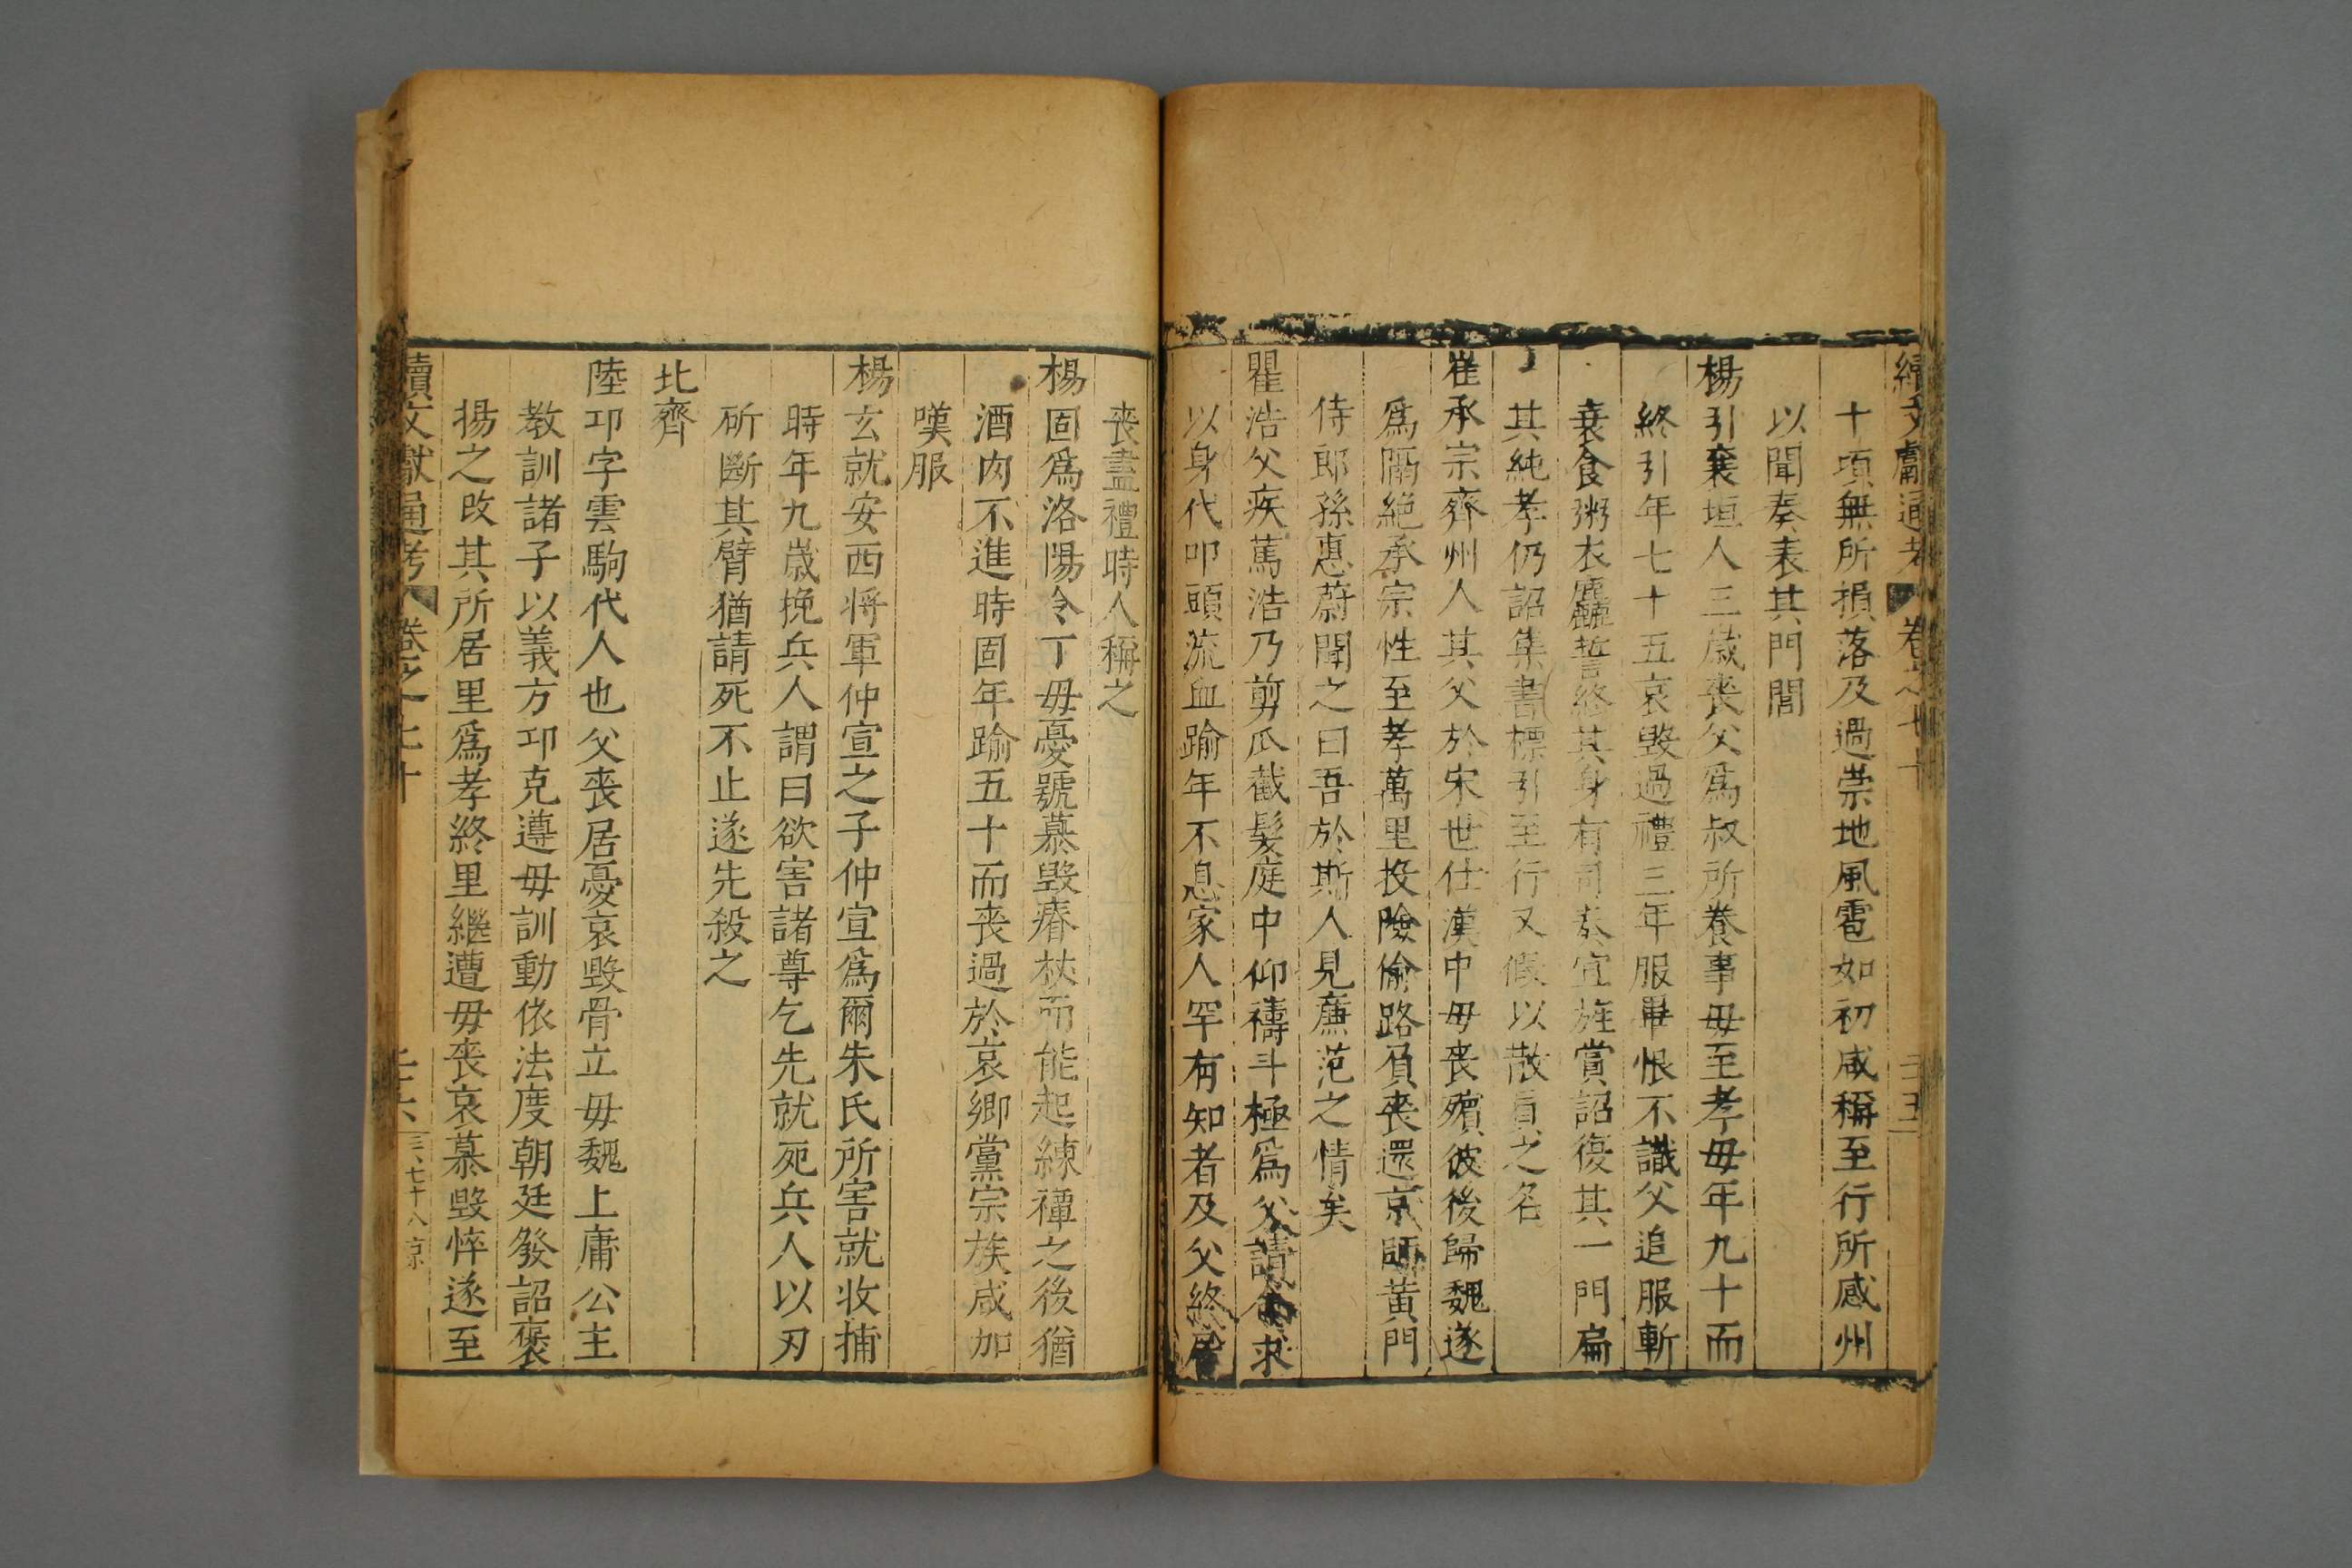 續文獻通考 卷之七十
十頃無所損落及過崇地風雹如初咸稱至行所感州
以聞奏表其門閭
楊引襄垣人三歲喪父爲叔所養事毋至孝毋年九十而
終引年七十五哀毀過禮三年服畢恨不識父追服斬
衰食粥衣麤誓終其身有司奏宜旌賞詔復其一門扁
其純孝仍詔集書標引至行又假以散員之名
崔承宗齊州人其父於宋世仕漢中毋喪殯彼後歸魏遂
爲隔絶承宗性至孝萬里投險偷路負喪還京師黃門
侍郎孫惠蔚聞之曰吾於斯人見廉范之情矣
瞿浩父疾篤浩乃剪瓜截髮庭中仰禱斗極爲父請命求
以身代叩頭流血踰年不息家人罕有知者及父終居
喪盡禮時人稱之
楊固爲洛陽令丁毋憂號慕毀瘠杖而能起練禫之後猶
酒肉不進時固年踰五十而喪過於哀鄉黨宗族咸加
嘆服
楊玄就安西將軍仲宣之子仲宣爲爾朱氏所害就收捕
時年九歲挽兵人謂曰欲害諸尊乞先就死兵人以刃
斫斷其臂猶請死不止遂先殺之
北齊
陸卭字雲駒代人也父喪居憂哀毀骨立毋魏上庸公主
教訓諸子以義方卭克遵毋訓動依法度朝廷發詔褒
揚之改其所居里爲孝終里繼遭毋喪哀慕毀悴遂至
續文獻通考 卷之七十 三六 三七十八 京